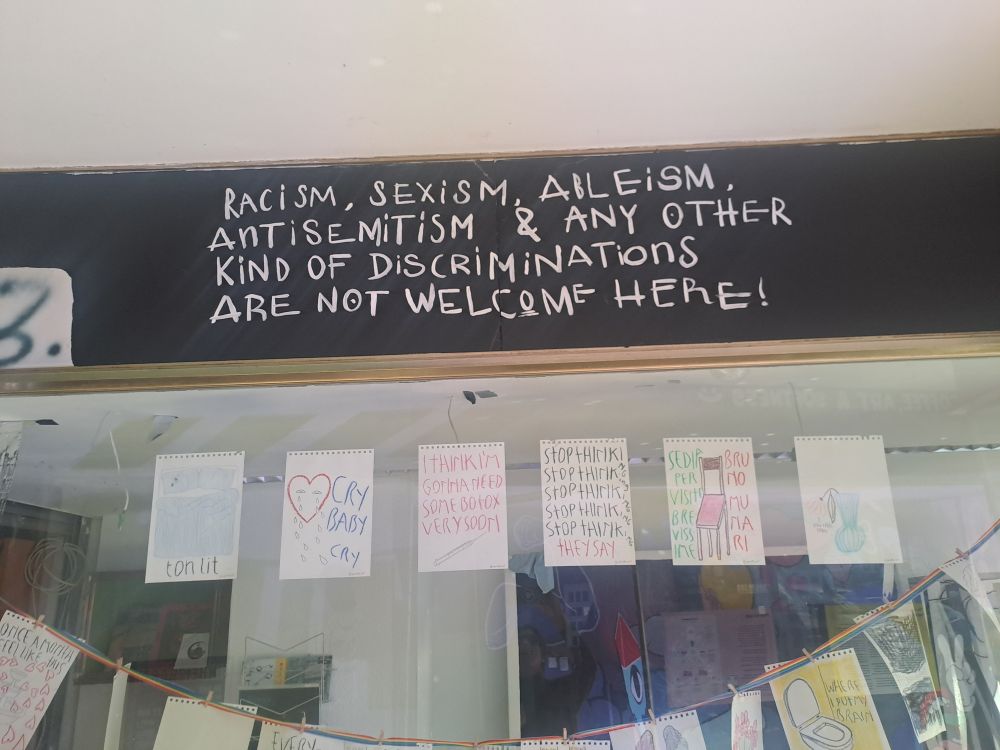 RACISM, SEXISM, ABLEISM,
ANTISEMITISM & ANY OTHER
KIND OF DISCRIMINATIONS
ARE NOT WELCOME HERE!
ton lit
CRY
BABY
CRY
I THINK I'M
GONNA NEED
SOME BOTOX
VERY SOON
STOP THINK,
STOP THINK,
STOP THINK,
STOP THINK,
STOP THINK,
STOP THINK,
THEY SAY
SEDIA
PER
VISITE
BRE
VISS
IME
BRU
NO
MU
NA
RI
ONCE A MONTH
FEEL LIKE THIS
EVERY
WHERE
I PUT MY
BRAIN